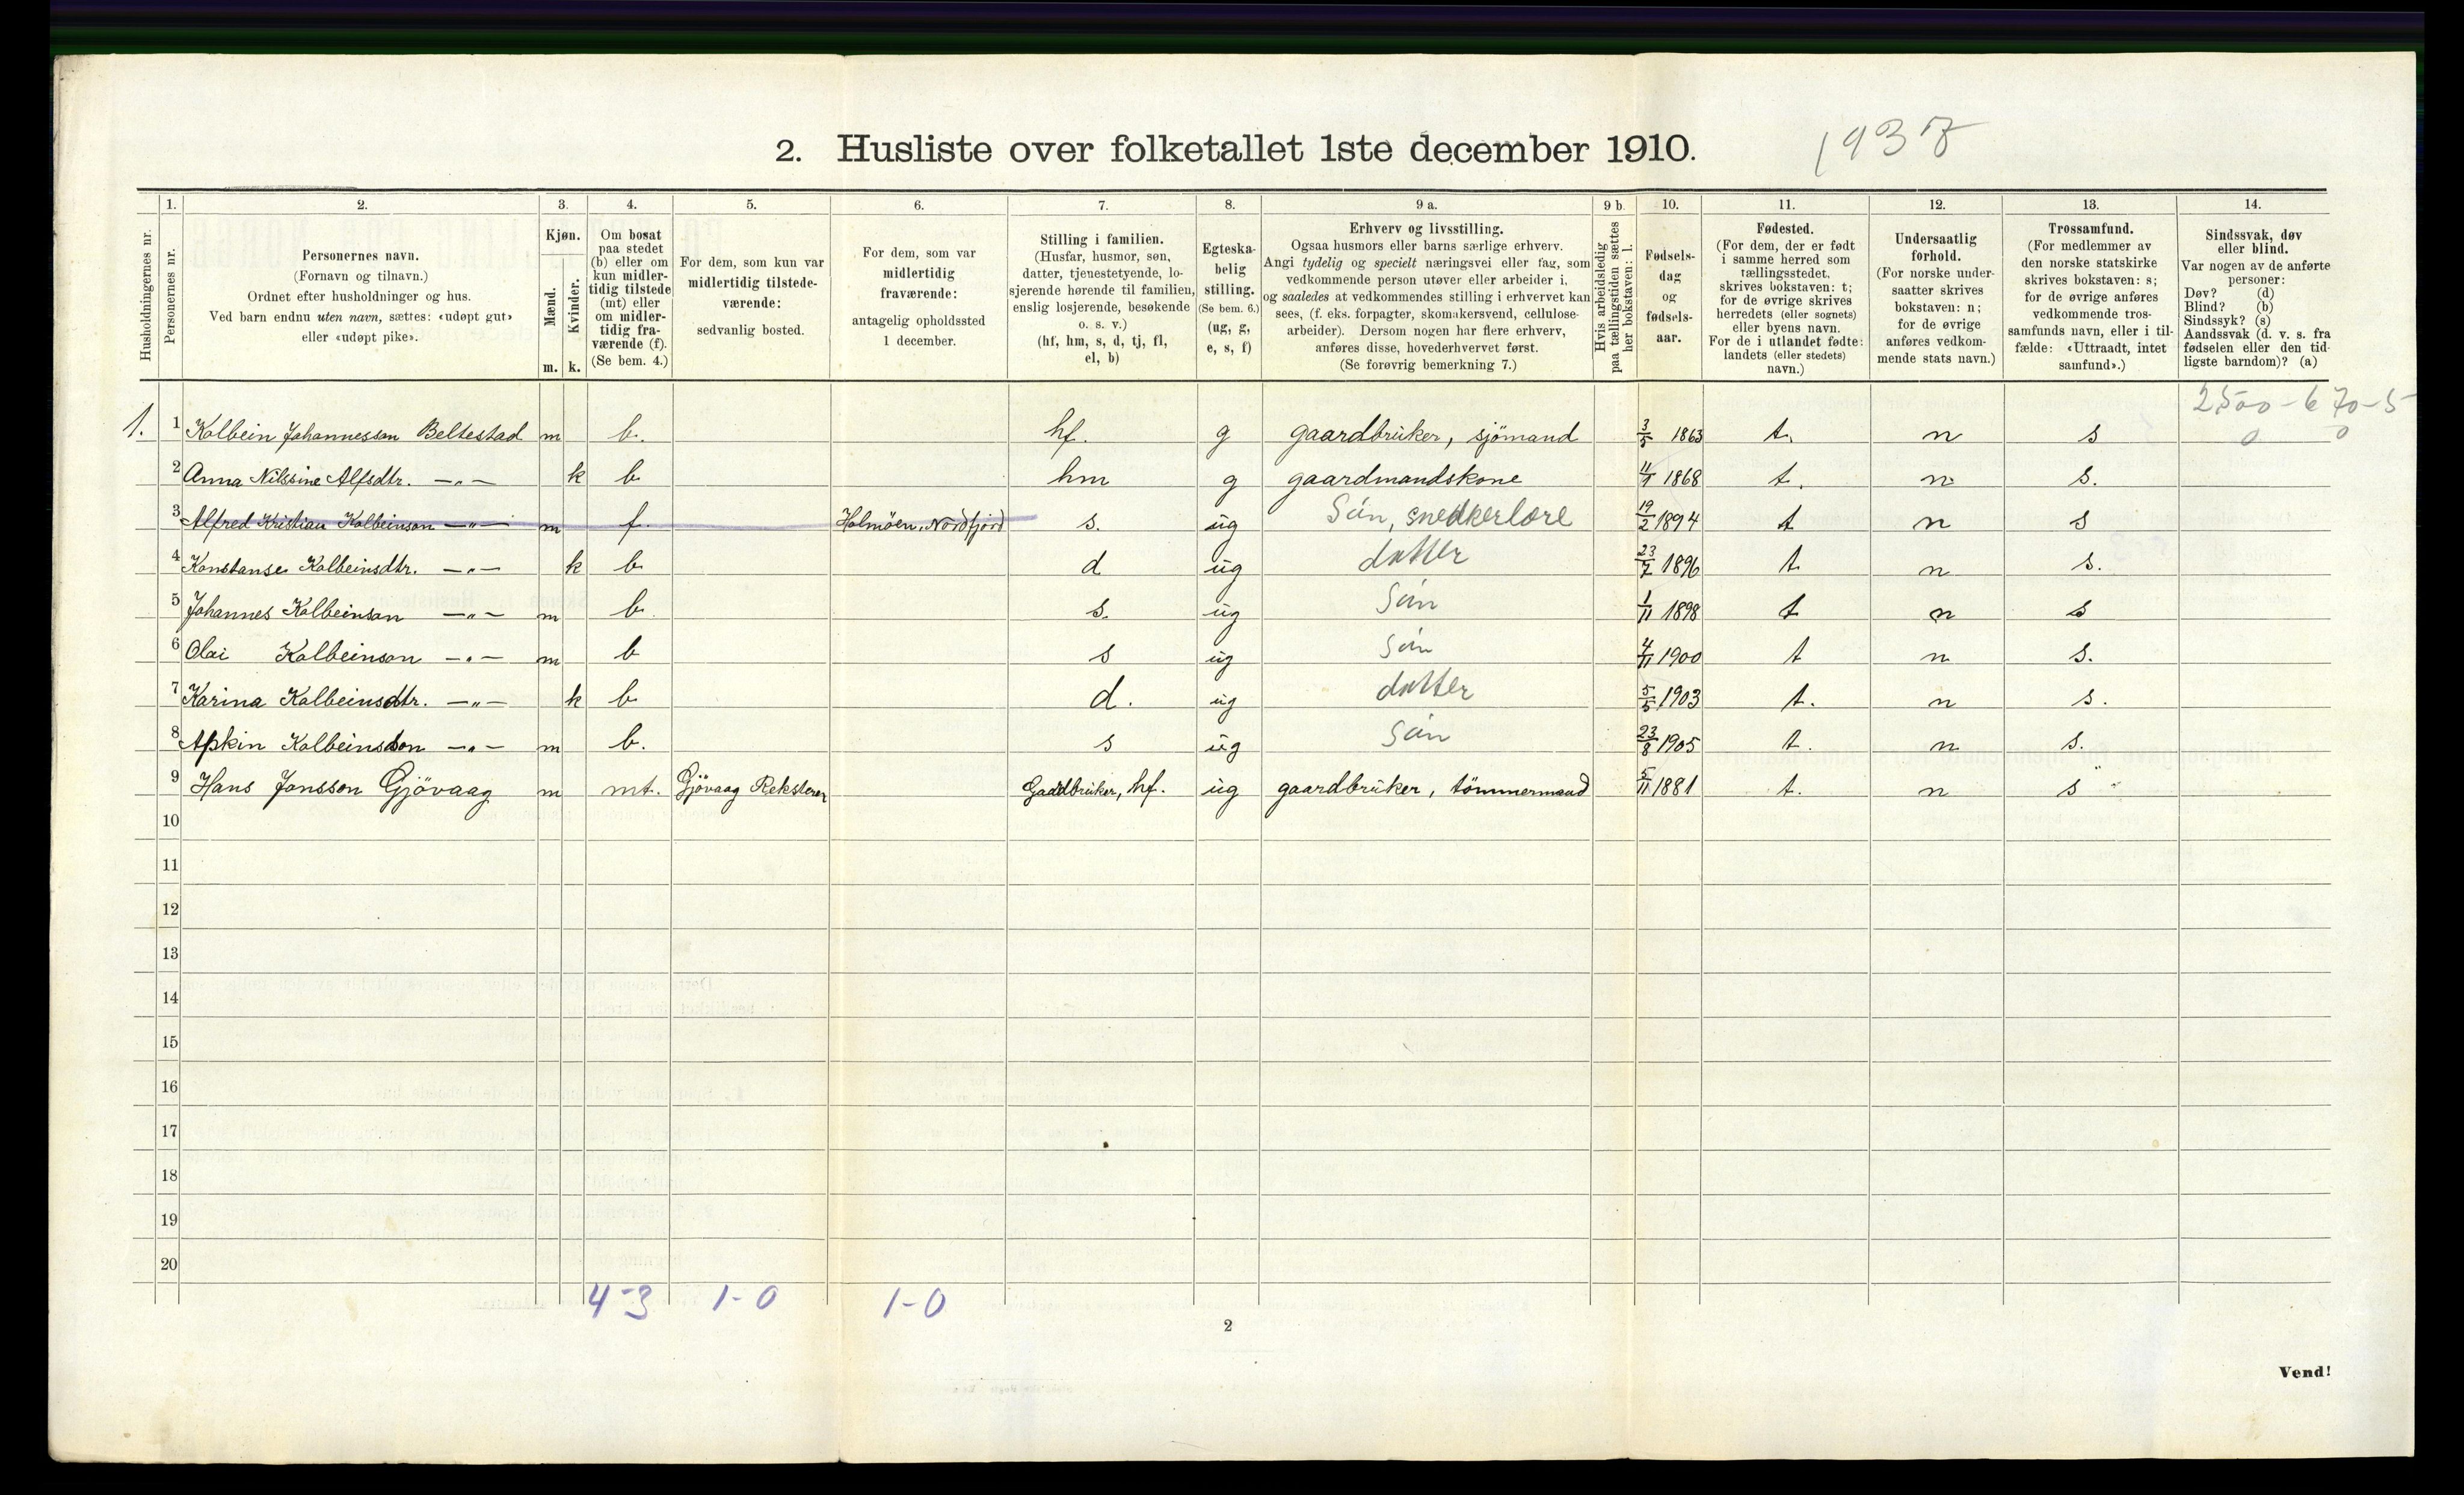 2. Husliste over folketallet 1ste december 1910.
1937
Husholdningernes nr.
1.
Personernes nr.
2.
Personernes navn.
(Fornavn og tilnavn.)
Ordnet efter husholdninger og hus.
Ved barn endnu uten navn, sættes: «udøpt gut»
eller «udøpt pike».
3.
Kjøn.
Mænd.
Kvinder.
m. k.
4.
Om bosat
paa stedet
(b) eller om
kun midler-
tidig tilstede
(mt) eller
om midler-
tidig fra-
værende (f).
(Se bem. 4.)
5.
For dem, som kun var
midlertidig tilstede-
værende:
sedvanlig bosted.
6.
For dem, som var
midlertidig
fraværende:
antagelig opholdssted
1 december.
7.
Stilling i familien.
(Husfar, husmor, søn,
datter, tjenestetyende, lo-
sjerende hørende til familien,
enslig losjerende, besøkende
o. s. v.)
(hf, hm, s, d, tj, fl,
el, b)
8.
Egteska-
belig
stilling.
(Se bem. 6.)
(ug, g,
e, s, f)
9 a.
Erhverv og livsstilling.
Ogsaa husmors eller barns særlige erhverv.
Angi tydelig og specielt næringsvei eller fag, som
vedkommende person utøver eller arbeider i,
og saaledes at vedkommendes stilling i erhvervet kan
sees, (f. eks. forpagter, skomakersvend, cellulose-
arbeider). Dersom nogen har flere erhverv,
anføres disse, hovederhvervet først.
(Se forøvrig bemerkning 7.)
9 b.
Hvis arbeidsledig
paa tællingstiden sættes
her bokstaven: l.
10.
Fødsels-
dag
og
fødsels-
aar.
11.
Fødested.
(For dem, der er født
i samme herred som
tællingsstedet,
skrives bokstaven: t;
for de øvrige skrives
herredets (eller sognets)
eller byens navn.
For de i utlandet fødte:
landets (eller stedets)
navn.)
12.
Undersaatlig
forhold.
(For norske under-
saatter skrives
bokstaven: n;
for de øvrige
anføres vedkom-
mende stats navn.)
13.
Trossamfund.
(For medlemmer av
den norske statskirke
skrives bokstaven: s;
for de øvrige anføres
vedkommende tros-
samfunds navn, eller i til-
fælde: «Uttraadt, intet
samfund».)
14.
Sindssvak, døv
eller blind.
Var nogen av de anførte
personer:
Døv? (d)
Blind? (b)
Sindssyk? (s)
Aandssvak (d. v. s. fra
fødselen eller den tid-
ligste barndom)? (a)
2500-670-5
0 0
1. 1 Kolbein Johannesson Beltestad m b. hf. g gaardbruker, sjömand 3/5 1863 t. n s
2 Anna Nilssine Alfsdtr. —"— k b hm g gaardmandskone 11/9 1868 t. n s.
3 Alfred Kristian Kolbeinson —"— m f. Holmöen, Nordfjord s. ug Sön, snedkerlære 19/2 1894 t n s
4 Konstanse Kolbeinsdtr. —"— k b d ug datter 23/7 1896 t n s.
5 Johannes Kolbeinson —"— m b. s. ug Sön 1/11 1898 t n s
6 Olai Kolbeinson —"— m b s ug Sön 4/11 1900 t n s.
7 Karina Kolbeinsdtr. —"— k b d. ug datter 5/5 1903 t. n s.
8 Apkin Kolbeinsson —"— m b. s ug Sön 23/8 1905 t. n s.
9 Hans Jonsson Gjövaag m mt. Gjövaag Reksteren Gardbruker, hf. ug gaardbruker, tömmermand 5/11 1881 t. n s
10
11
12
13
14
15
16
17
18
19
20
4-3 1-0 1-0
2
Vend!